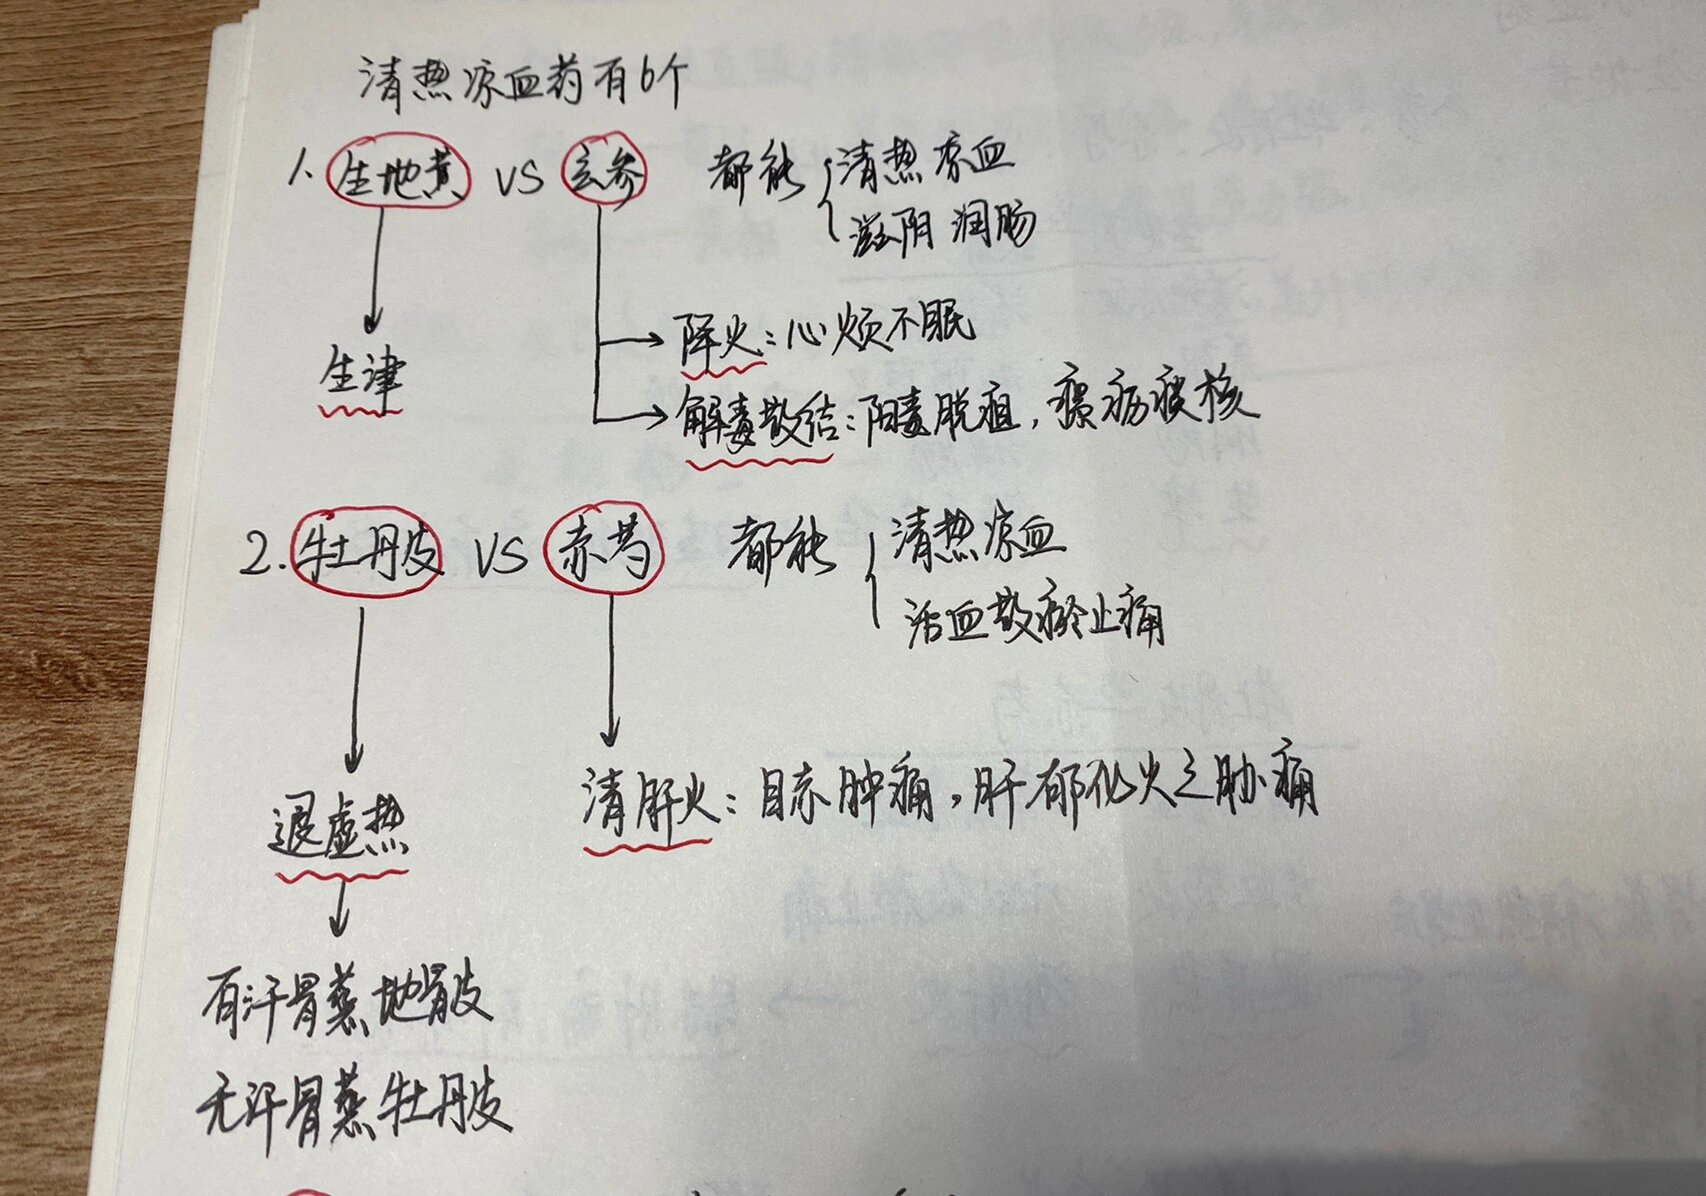 清热凉血药有6个
1. 生地黄 VS 玄参 都能 清热凉血
滋阴润肠
降火：心烦不眠
生津
解毒散结：阳毒脱疽，瘰疬痰核
2. 牡丹皮 VS 赤芍 都能 清热凉血
活血散瘀止痛
清肝火：目赤肿痛，肝郁化火之胁痛
退虚热
有汗骨蒸地骨皮
无汗骨蒸牡丹皮